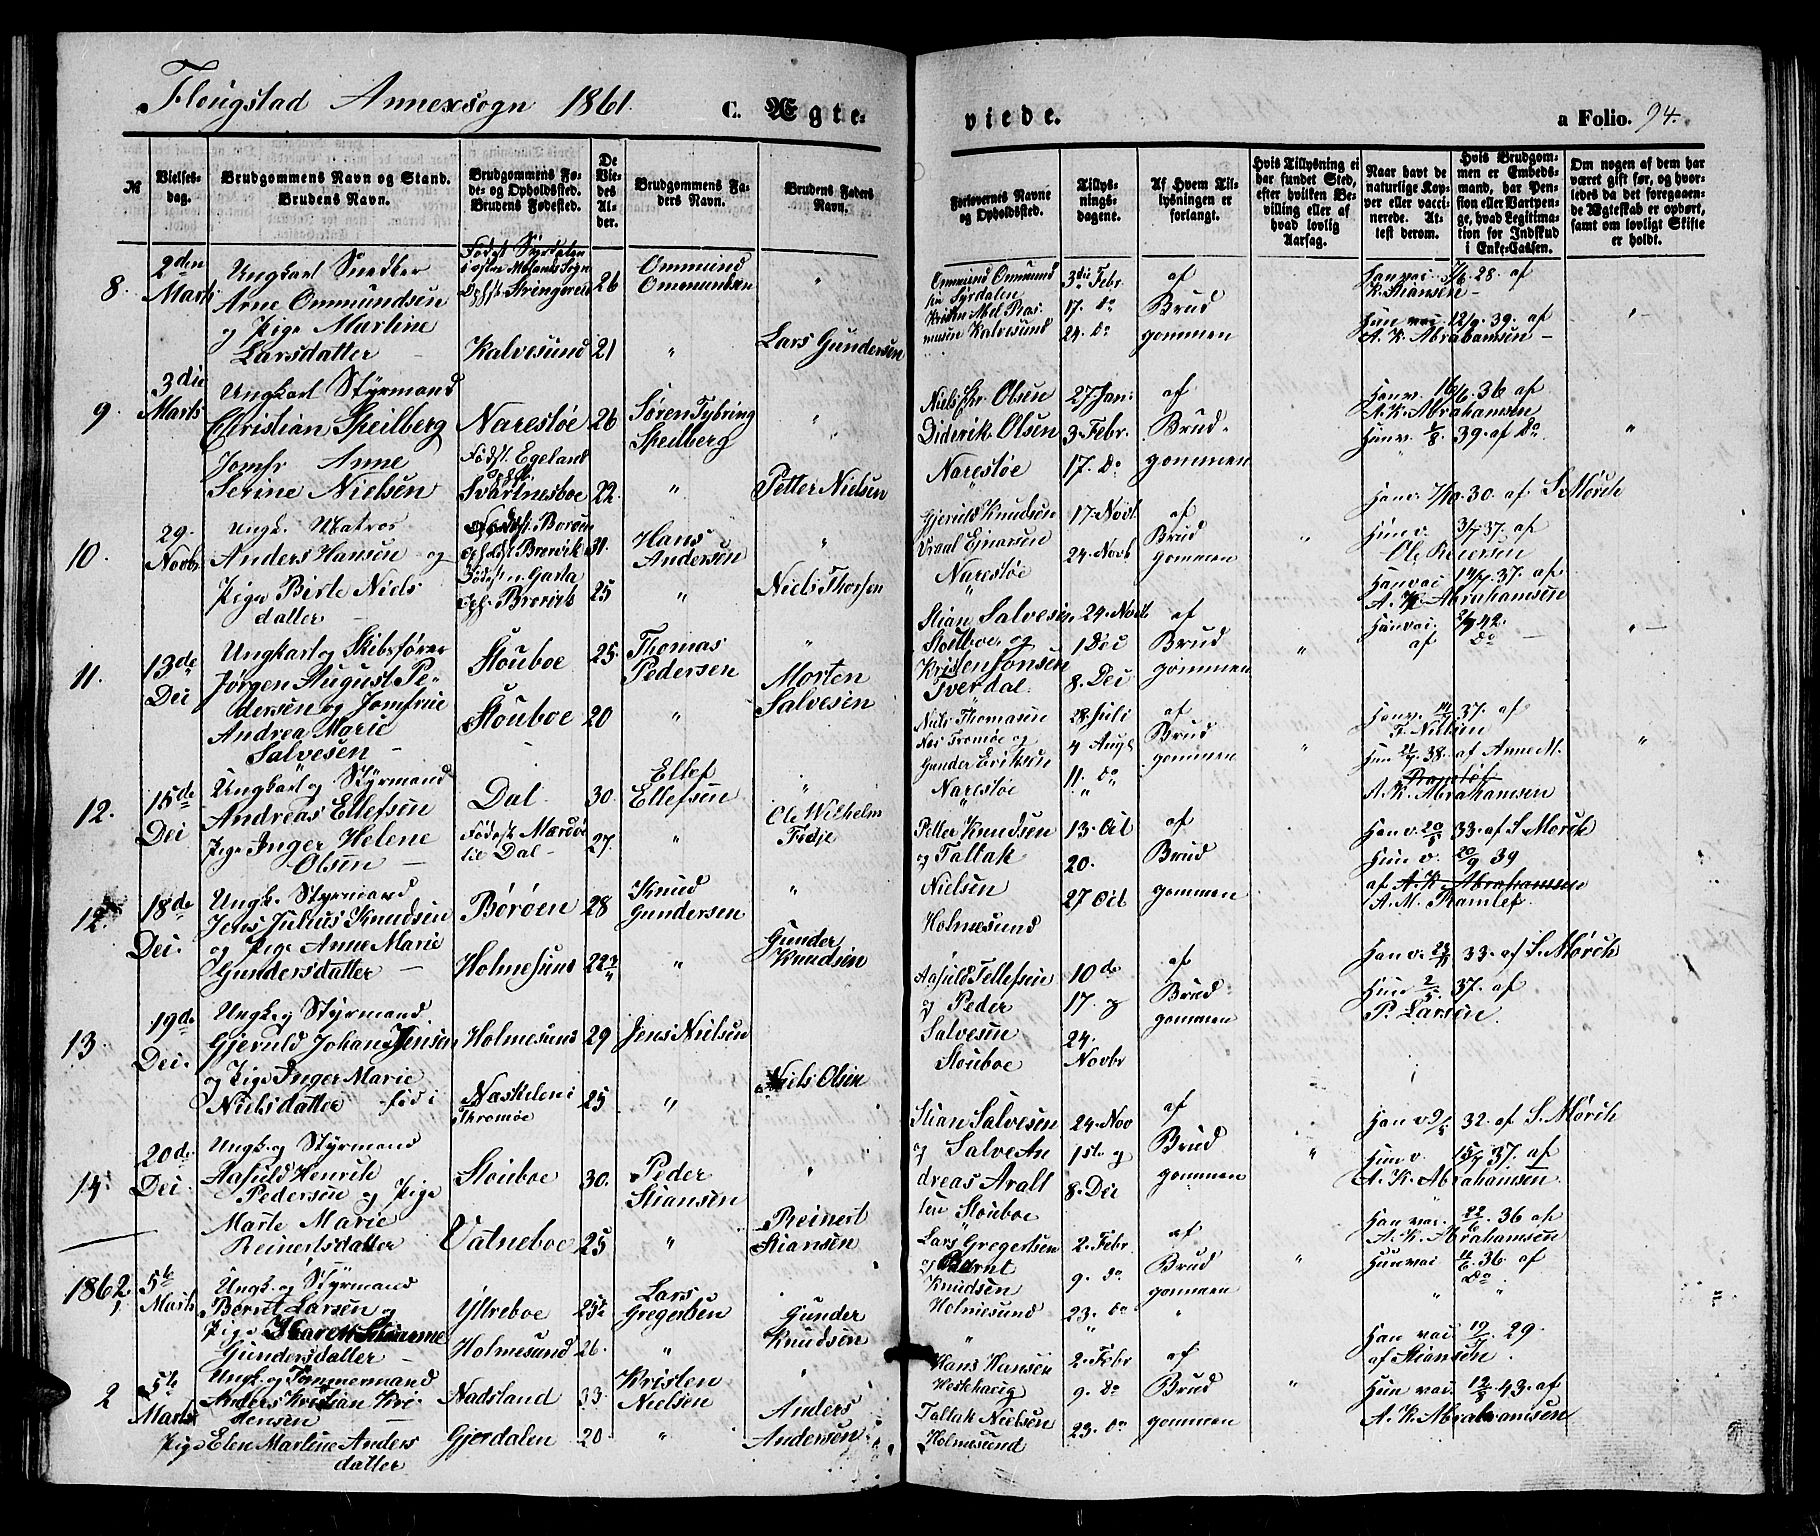 Flougstad Annexsogn 1861. C. Ægte-
viede. a Folio. 94.
№
Vielses-
dag.
Brudgommens Navn og Stand.
Brudens Navn.
Brudgommens Fø-
de- og Opholdssted.
Brudens Fødested.
De
Vie-
des
Al-
der.
Brudgommens Fa-
ders Navn.
Brudens Faders
Navn.
Forlovernes Navne
og Opholdssted.
Tillys-
nings-
dagene.
Af Hvem Til-
lysningen er
forlangt.
Hvis Tillysning ei
har fundet Sted,
efter hvilken Be-
villing eller af
hvad lovlig
Aarsag.
Naar havt de
naturlige Kop-
per eller vacci-
nerede. At-
test derom.
Hvis Brudgom-
men er Embeds-
mand, har Pen-
sion eller Vartpen-
ge, hvad Legitima-
tion for Indskud
i Enke-Cassen.
Om nogen af dem har
været gift før, og hvor-
ledes da det foregaaen-
de Ægteskab er ophørt,
samt om lovligt Skifte
er holdt.
8.
2den
Marts
Ungkarl Snedker
Arne Ommundsen
og Pige Martine
Larsdatter
Født Syrdalen
Kalvesund
26
21
Ommund
Ommundsen
Lars Gundersen
Ommund Ommund
sen Syrdalen
Kalvesund
3die Febr
17. do
24. do
af
Brud
gommen
Han vac. 7/6 28 af
K. Stiansen
Hun vac. 12/9. 39. af
A. K. Abrahamsen
9.
3die
Marts
Ungkarl Styrmand
Christian Speilberg
Jomfr Anne
Serine Nielsen
Narestøe
Født. Egeland
Svartnesboe
26
22.
Søren Tybring
Speilberg
Petter Nielsen
Niels Chr. Olsen
Diderik Olsen
Narestøe
27 Jan.
3. Febr.
17. Do
af
Brud-
gommen
Han v. 16/6. 36 af
A. K. Abrahamsen
Hun v. 6/8. 39. af Do
10.
29.
Novb.
Ungk. Matros
Anders Hansen og
Pige Birte Niels
datter
Født. Borøen
Født. Garta
31.
25
Hans
Andersen
Niels Thorsen
Gjeruld Knudsen
Narestøe
17. Novb.
24. Novb
af
Brud
gommen
Han v. 7/10. 30. af S. Mørch
Hun v. 3/7 37. af
11.
13de
Dec
Ungkarl og Skibsfører
Jørgen August Pe-
dersen og Jomfrue
Andrea Marie
Salvesen
Stouboe
Stouboe
25
20
Thomas
Pedersen
Morten
Salvesen
Stian Salvesen
Stouboe og
Kristen Jonsen
Tverdal
24. Novb
1 Dec
8. Dec
af
Brud
gommen
A. K. Abrahamsen
af Do
12.
15de
Dec
Ungkarl og Styrmand
Andreas Ellefsen
Pige Inger Helene
Olsen
Dal
Dal
30.
27.
Ellef
Ellefsen
Ole Wilhelm
Fedje
Niels Thomasen
Gunder Eriksen
Narestøe
28. Juli
4 Augs
11. do
af
Brud
gommen
F. Nilsen
A. K. Abrahamsen
12.
18de
Dec.
Ungk. Styrmand
Jens Julius Knudsen
og Pige Anne Marie
Gundersdatter
Børøen
Holmesund
28
Knud
Gundersen
Gunder
Knudsen
Petter Knudsen
og Taltak
Nielsen
Holmesund
13. Oct
20.
27 Oct
af
Brud
gommen
Han v. 20/5 33. af S. Mørch
Hun v. 20/9 39
af A. K. Abrahamsen
A. M. Ramlef
13.
19de
Dec.
Ungk. og Styrmand
Gjeruld Johan Jensen
og Pige Inger Marie
Nielsdatter fød i
Holmesund
Naskelen i
Thromøe
29
25
Jens Nielsen
Niels Olsen
Aasuld Tellefsen
og Peder
Salvesen
Stouboe
10de
17. og
24.
Novbr
af
Brud
gommen
Han v. 33. af S. Mørch
Hun 2/5. 37. af
P. Larsen.
14.
20de
Dec
Ungk. og Styrmand
Aasuld Henrik
Pedersen og Pige
Marte Marie
Reinertsdatter
Stouboe
Vatneboe
30.
25
Peder
Stiansen
Reinert
Stiansen
Stian Salvesen
og Salve An
dreas Aralt
sen Stouboe
24. Nov
1ste og
8. Dec
af
Brud
gommen
32. af S. Mørch
Hun v. 37. af
A. K. Abrahamsen
1862
1
5te
Marts
Ungk. og Styrmand
Bernt Larsen og
Pige Karen
Gundersdatter
Ytreboe
Holmesund
26.
Lars
Gregersen
Gunder
Knudsen
Lars Gregertsen
og Bernt
Knudsen
Holmesund
2. Febr
9. do
23. do
af
Brud
gommen
Han vac. 22/6. 36 af
A. K. Abrahamsen
Hun vac. 36. af
Do
2
5te
Marts
Ungk. og Tømmermand
Anders Kristian Kri-
stensen
Pige Elen Martine Anders
datter
Nadsland
Gjerdalen
33.
20
Kristen
Nielsen
Anders
Andersen
Hans Hansen
Taltak Nielsen
Holmesund
2. Febr
9. do
23. do
af
Brud
gommen
Han vac. 19/7. 29.
af Stiansen
Hun vac. 12/8. 43. af
A. K. Abrahamsen